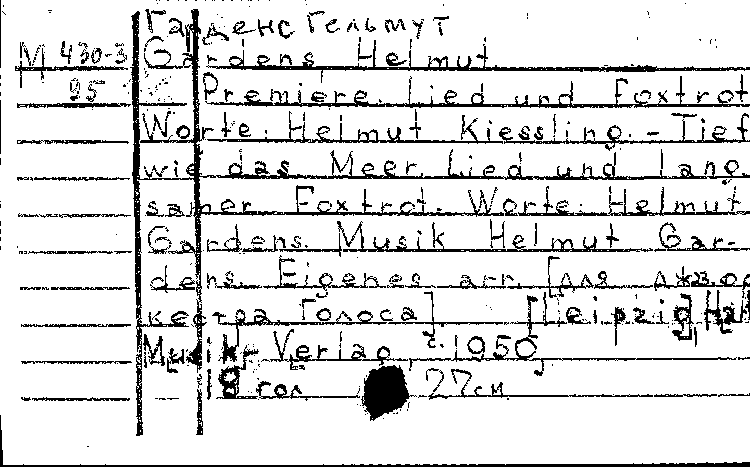 Гарденс Гельмут
М 430-3 Gardens Helmut
95 Premiere. Lied und Foxtrot
Worte: Helmut Kiessling. - Tief
wie das Meer. Lied und lang-
samer Foxtrot. Worte: Helmut
Gardens. Musik Helmut Gar-
dens. Eigenes arr. [для джазор
кестра Голоса] [Leipzig]
Musik- Verlag, 1950
гол 27см